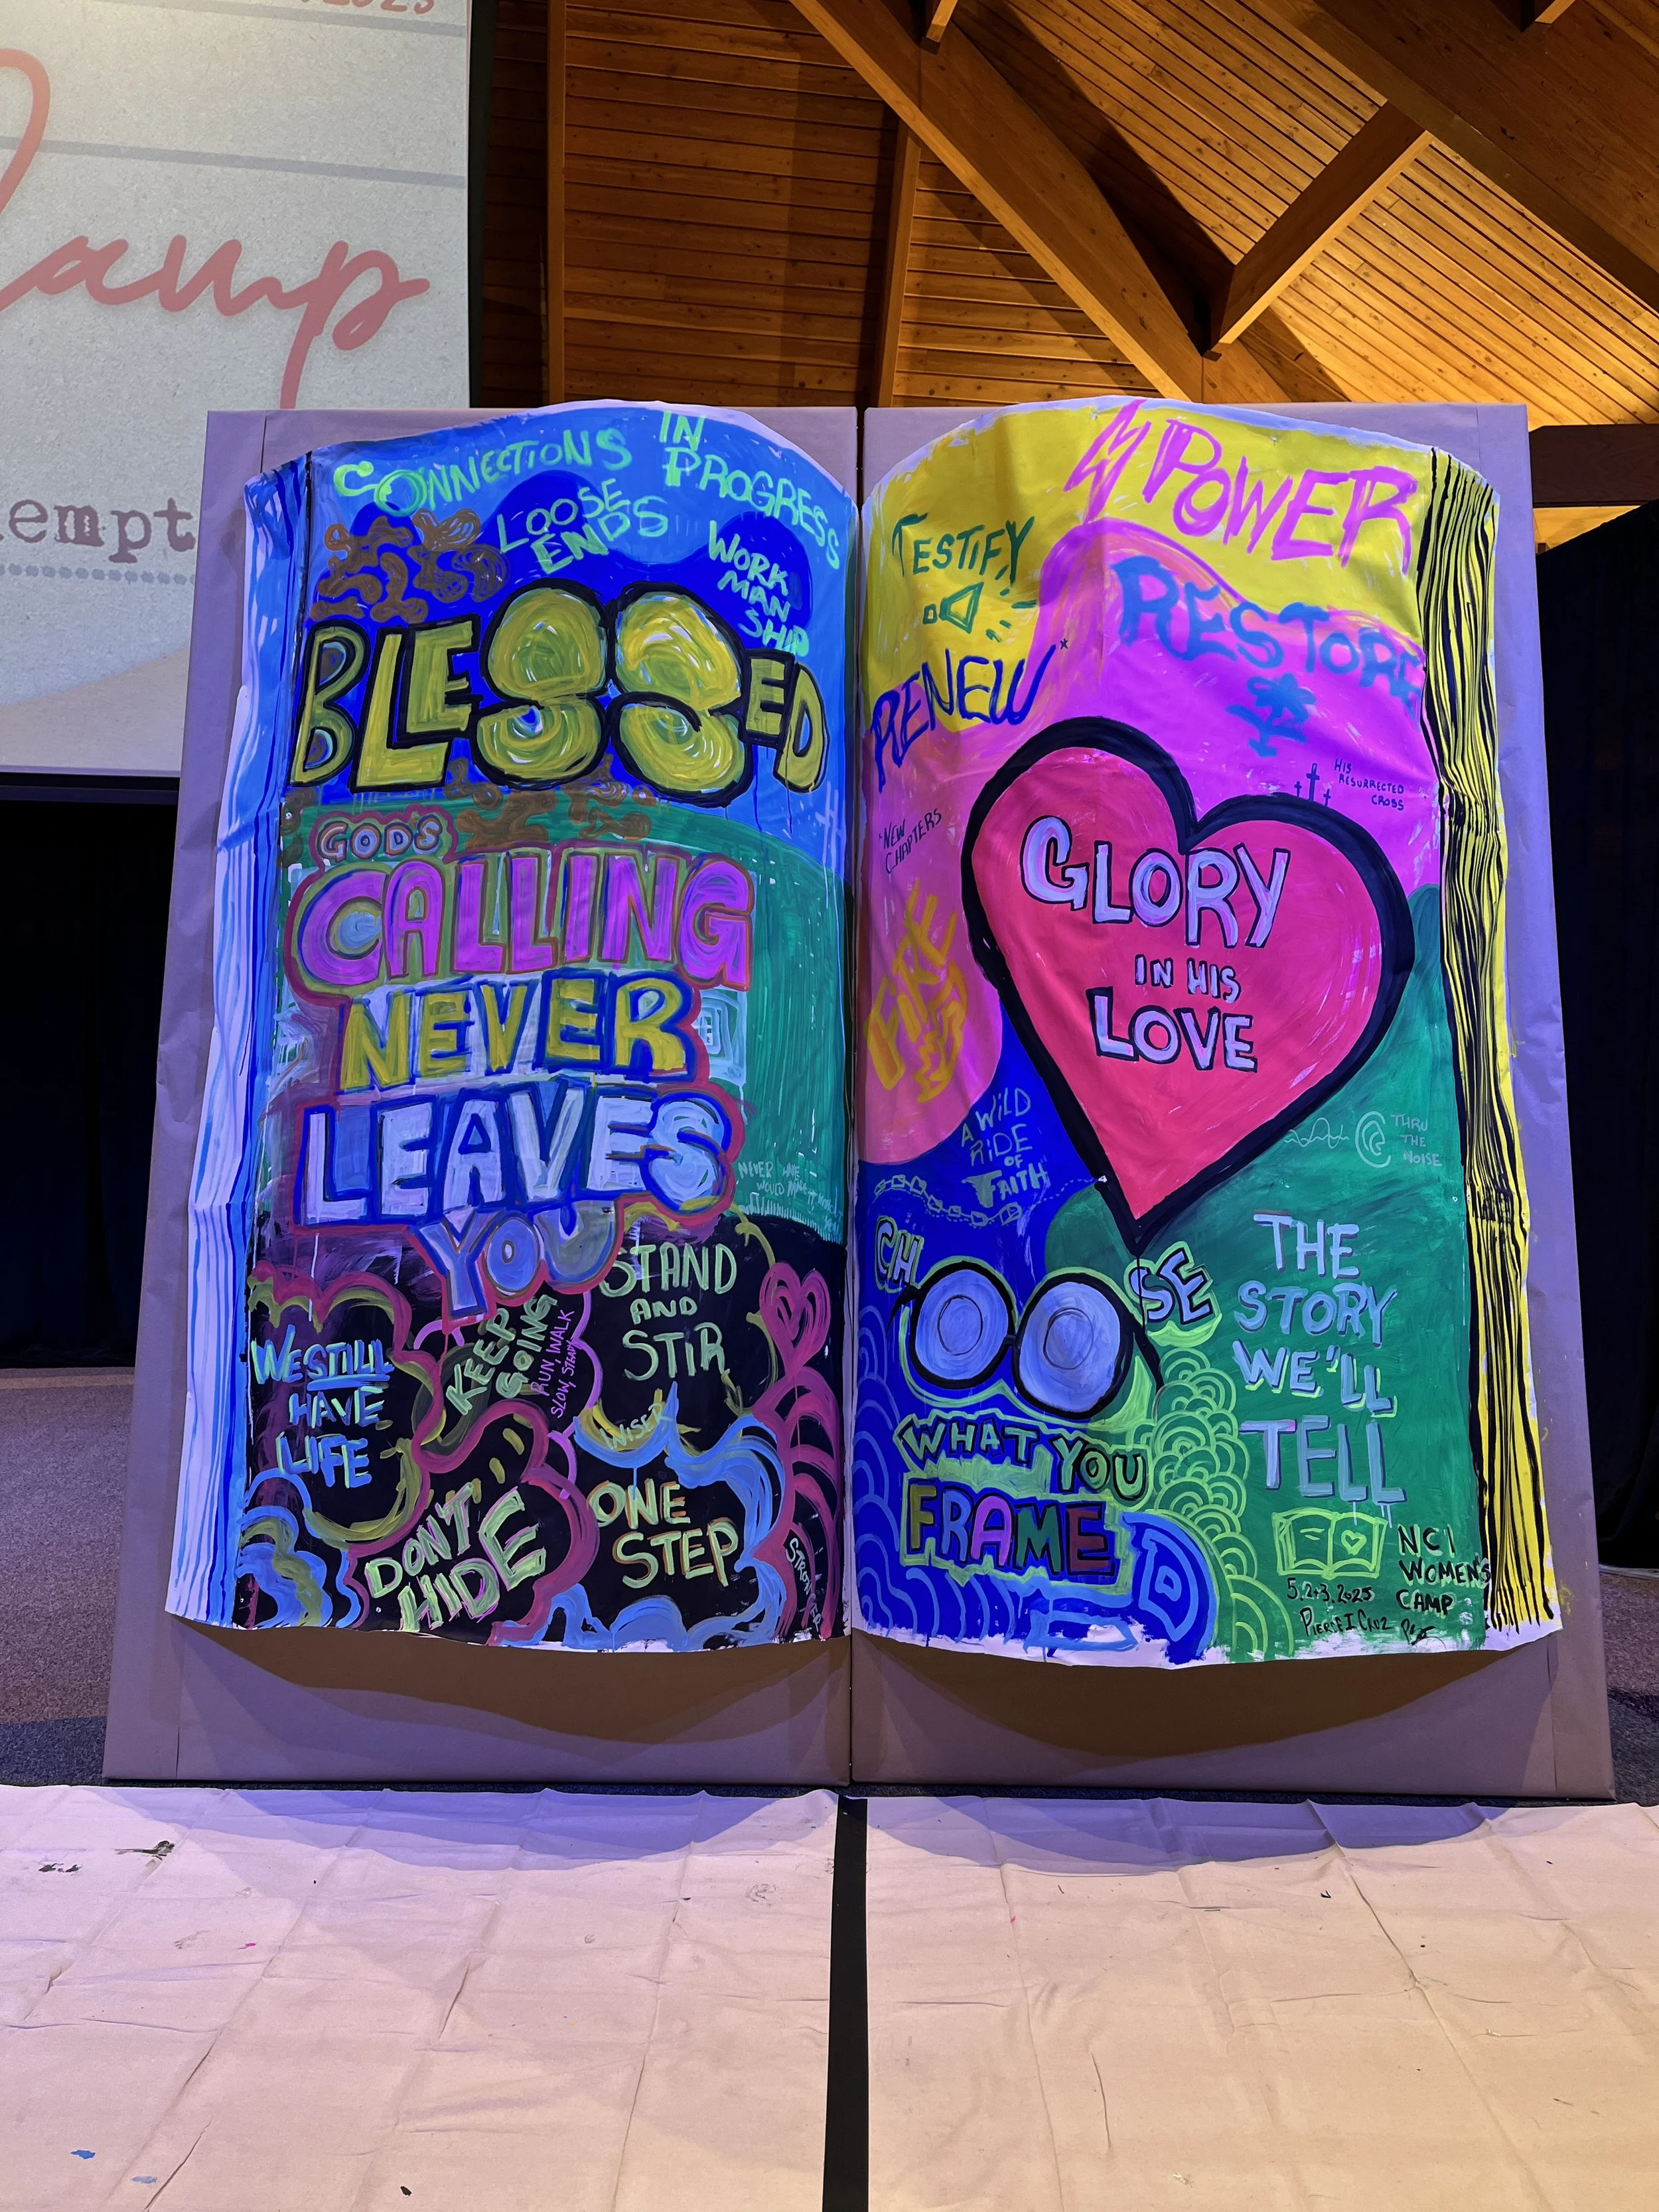 2025
Camp
empt
CONNECTIONS
IN
PROGRESS
LOOSE
ENDS
WORK
MAN
SHIP
BLESSED
GOD'S
CALLING
NEVER
LEAVES
YOU
NEVER
WOULD
STAND
AND
STIR
KEEP
GOING
RUN, WALK
SLOW, STEADY
WE STILL
HAVE
LIFE
WISER
DON'T
HIDE
ONE
STEP
STRONGER
MPOWER
TESTIFY
RESTORE
RENEW
HIS
RESURRECTED
CROSS
"NEW
CHAPTERS
FIRE
GLORY
IN HIS
LOVE
A WILD
RIDE
OF
FAITH
THRU
THE
NOISE
CHOOSE
WHAT YOU
FRAME
THE
STORY
WE'LL
TELL
NCI
WOMEN'S
CAMP
5.2+3.2025
PIERCE I CRUZ